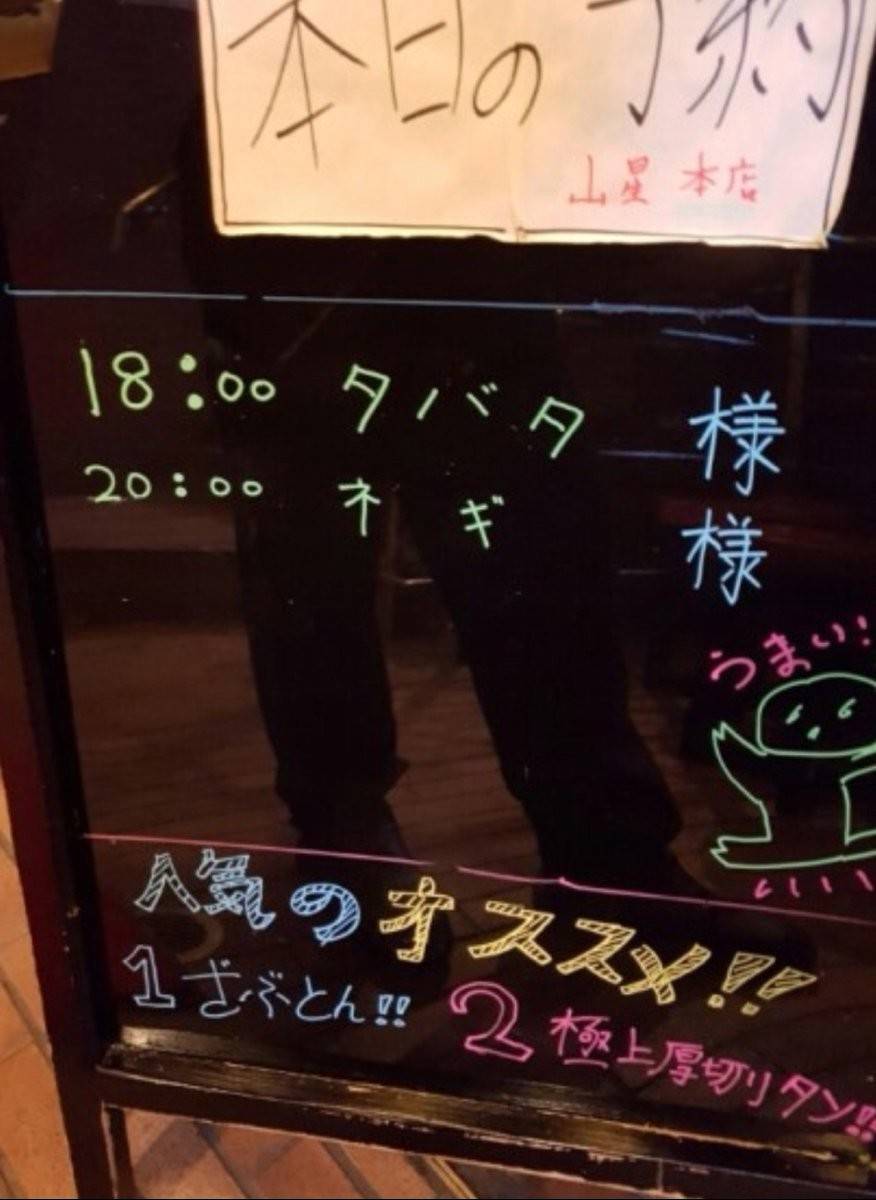 本日の予約
山星 本店
18:00 タバタ 様
20:00 ネギ 様
うまい!
人気のオススメ!!
1 ざぶとん!!
2 極上厚切りタン!!